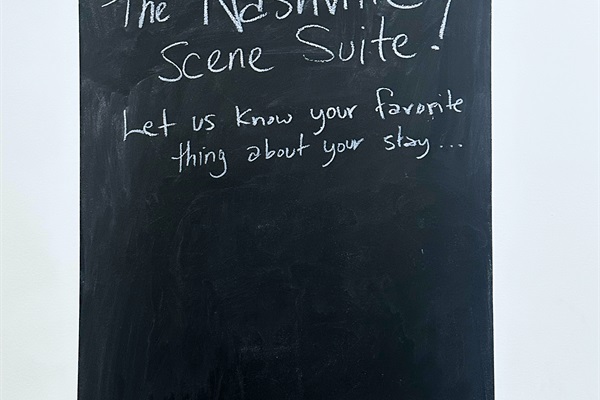 The Nashville
Scene Suite!
Let us know your favorite
thing about your stay...